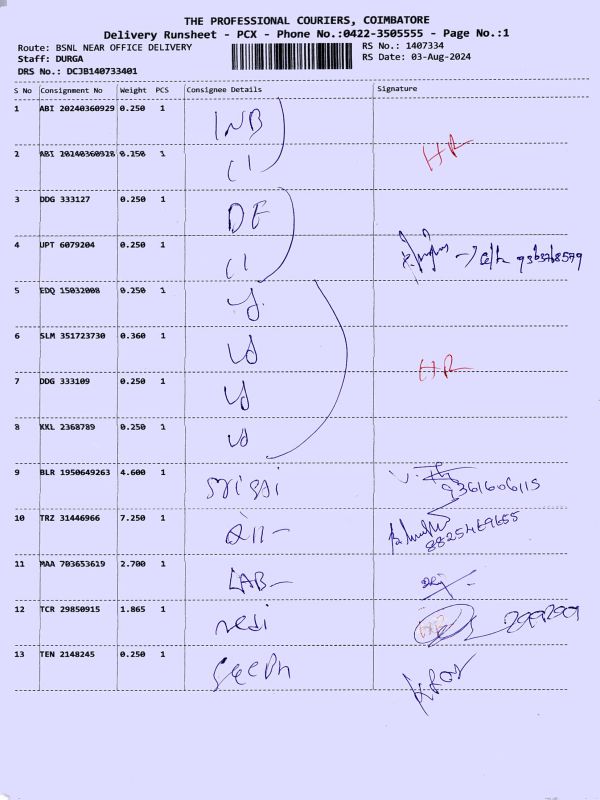 THE PROFESSIONAL COURIERS, COIMBATORE
Delivery Runsheet - PCX - Phone No.:0422-3505555 - Page No.:1
Route: BSNL NEAR OFFICE DELIVERY RS No.: 1407334
Staff: DURGA RS Date: 03-Aug-2024
DRS No.: DCJB140733401
S No Consignment No Weight PCS Consignee Details Signature
1 ABI 20240360929 0.250 1 INB
2 ABI 20240360928 0.250 1 HR
3 DDG 333127 0.250 1 DE
4 UPT 6079204 0.250 1
5 EDQ 15032008 0.250 1
6 SLM 351723730 0.360 1
7 DDG 333109 0.250 1 HR
8 KKL 2368789 0.250 1
9 BLR 1950649263 4.600 1 9361606115
10 TRZ 31446966 7.250 1 8825469655
11 MAA 703653619 2.700 1 LAB-
12 TCR 29850915 1.865 1
13 TEN 2148245 0.250 1